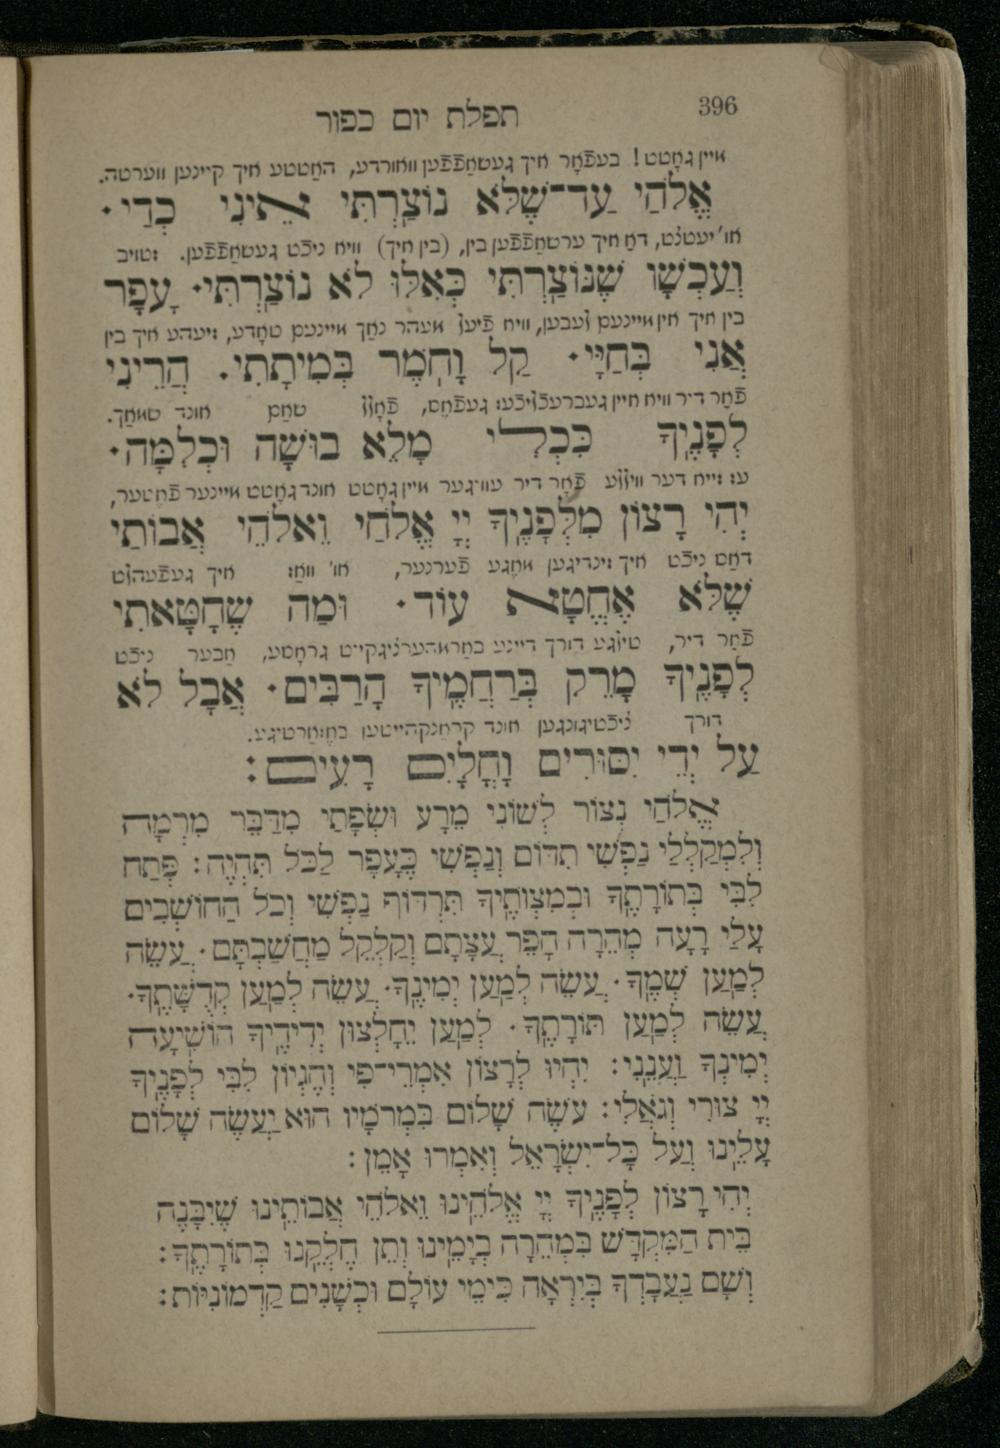 396
תפלת יום כפור
מיין גאָטט! בעפֿאָר איך געשאַפֿפֿען וואורדע, האַטטע איך קיינען ווערטה.
אֱלֹהַי עַד־שֶׁלֹּא נוֹצַרְתִּי אֵינִי כְדַי׃
דאַ איך ערשאַפֿפֿען בין, (בין איך) וויא ניכֿט געשאַפֿפֿען.
וְעַכְשָׁו שֶׁנּוֹצַרְתִּי כְּאִלּוּ לֹא נוֹצַרְתִּי· עָפָר
בין איך אין מיינעם לעבען, וויא פֿיעל מעהר נאָך מיינעם טאָדע, זיעהע איך בין
אֲנִי בְּחַיָּי· קַל וָחֹמֶר בְּמִיתָתִי. הֲרֵינִי
פֿאָר דיר וויא איין געפֿאֶס, פֿאָלל שאַם אונד שמאַך.
לְפָנֶיךָ כִּכְלִי מָלֵא בוּשָׁה וּכְלִמָּה·
עס זייא דער ווילללע פֿאָר דיר עוויגער מיין גאָטט אונד גאָטט מיינער פֿאֶטער,
יְהִי רָצוֹן מִלְּפָנֶיךָ יְיָ אֱלֹהַי וֵאלֹהֵי אֲבוֹתַי
דאַס ניכֿט איך זינדיגען מאֶגע פֿערנער, או' וואַס איך געפֿעהלט
שֶׁלֹּא אֶחֱטָא עוֹד· וּמַה שֶּׁחָטָאתִי
פֿאָר דיר, טילגע דורך דיינע באַרמהערציגקייט גראָסע, אַבער ניכֿט
לְפָנֶיךָ מָרֵק בְּרַחֲמֶיךָ הָרַבִּים· אֲבָל לֹא
דורך ציכֿטיגונגען אונד קראַנקהייטען באֶזאַרטיגע.
עַל יְדֵי יִסּוּרִים וָחֳלָיִם רָעִים׃
אֱלֹהַי נְצוֹר לְשׁוֹנִי מֵרָע וּשְׂפָתַי מִדַּבֵּר מִרְמָה
וְלִמְקַלְלַי נַפְשִׁי תִדּוֹם וְנַפְשִׁי כֶּעָפָר לַכֹּל תִּהְיֶה׃ פְּתַח
לִבִּי בְּתוֹרָתֶךָ וּבְמִצְוֹתֶיךָ תִּרְדּוֹף נַפְשִׁי וְכֹל הַחוֹשְׁבִים
עָלַי רָעָה מְהֵרָה הָפֵר עֲצָתָם וְקַלְקֵל מַחֲשַׁבְתָּם· עֲשֵׂה
לְמַעַן שְׁמֶךָ· עֲשֵׂה לְמַעַן יְמִינֶךָ· עֲשֵׂה לְמַעַן קְדֻשָּׁתֶךָ·
עֲשֵׂה לְמַעַן תּוֹרָתֶךָ· לְמַעַן יֵחָלְצוּן יְדִידֶיךָ הוֹשִׁיעָה
יְמִינְךָ וַעֲנֵנִי׃ יִהְיוּ לְרָצוֹן אִמְרֵי־פִי וְהֶגְיוֹן לִבִּי לְפָנֶיךָ
יְיָ צוּרִי וְגֹאֲלִי׃ עֹשֶׂה שָׁלוֹם בִּמְרֹמָיו הוּא יַעֲשֶׂה שָׁלוֹם
עָלֵינוּ וְעַל כָּל־יִשְׂרָאֵל וְאִמְרוּ אָמֵן׃
יְהִי רָצוֹן לְפָנֶיךָ יְיָ אֱלֹהֵינוּ וֵאלֹהֵי אֲבוֹתֵינוּ שֶׁיִּבָּנֶה
בֵּית הַמִּקְדָּשׁ בִּמְהֵרָה בְיָמֵינוּ וְתֵן חֶלְקֵנוּ בְּתוֹרָתֶךָ׃
וְשָׁם נַעֲבָדְךָ בְּיִרְאָה כִּימֵי עוֹלָם וּכְשָׁנִים קַדְמוֹנִיּוֹת׃